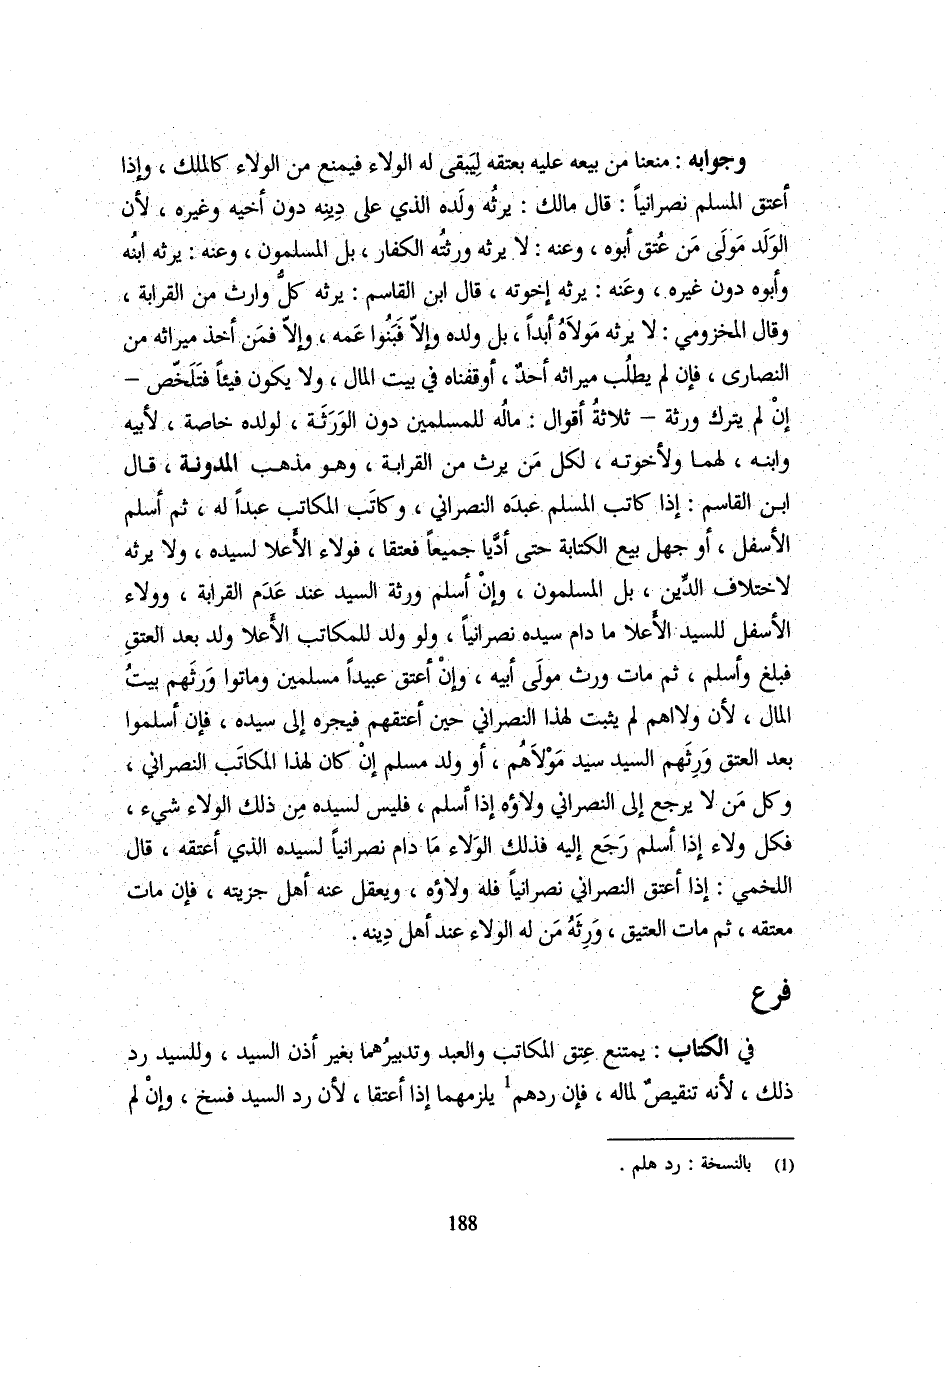 وجوابه : منعنا من بيعه عليه بعتقه لِيَبقى له الولاء فيمنع من الولاء كالملك ، وإذا
أعتق المسلم نصرانياً : قال مالك : يرثُه ولَده الذي على دِينِه دون أخيه وغيره ، لأن
الوَلَد مَولَى مَن عُتق أبوه ، وعنه : لا يرثه ورثتُه الكفار ، بل المسلمون ، وعنه : يرثه ابنُه
وأبوه دون غيره ، وعَنه : يرثه إخوته ، قال ابن القاسم : يرثه كلُّ وارث من القرابة ،
وقال المخزومي : لا يرثه مَولاَهُ أبداً ، بل ولده وإلاّ فَبَنُوا عَمه ، وإلاّ فمَن أخذ ميراثه من
النصارى ، فإن لم يطلُب ميراثه أحدٌ ، أوقفناه في بيت المال ، ولا يكون فيئاً فتَلَخّص –
إنْ لم يترك ورثة – ثلاثةُ أقوال : مالُه للمسلمين دون الوَرَثَة ، لولده خاصة ، لأبيه
وابنه ، لهما ولأخوته ، لكل مَن يرث من القرابة ، وهو مذهب المدونة ، قال
ابن القاسم : إذا كاتب المسلم عبدَه النصراني ، وكاتَب المكاتب عبداً له ، ثم أسلم
الأسفل ، أو جهل بيع الكتابة حتى أدَّيا جميعاً فعتقا ، فولاء الأَعلا لسيده ، ولا يرثه
لاختلاف الدِّين ، بل المسلمون ، وإنْ أسلم ورثة السيد عند عَدَم القرابة ، وولاء
الأسفل للسيد الأَعلا ما دام سيده نصرانياً ، ولو ولد للمكاتب الأَعلا ولد بعد العتقِ
فبلغ وأسلم ، ثم مات ورث مولَى أبيه ، وإنْ أعتق عبيداً مسلمين وماتوا وَرثَهم بيتُ
المال ، لأن ولااهم لم يثبت لهذا النصراني حين أعتقهم فيجره إلى سيده ، فإن أسلموا
بعد العتق وَرِثَهم السيد سيد مَوْلاَهُم ، أو ولد مسلم إنْ كان لهذا المكاتَب النصراني ،
وكل مَن لا يرجع إلى النصراني ولاؤه إذا أسلم ، فليس لسيده مِن ذلك الولاء شيء ،
فكل ولاء إذا أسلم رَجَع إليه فذلك الوَلاء مَا دام نصرانياً لسيده الذي أعتقه ، قال
اللخمي : إذا أعتق النصراني نصرانياً فله ولاؤه ، ويعقل عنه أهل جزيته ، فإن مات
معتقه ، ثم مات العتيق ، وَرِثَهُ مَن له الولاء عند أهل دِينه .
فرع
في الكتاب : يمتنع عِتق المكاتب والعبد وتدبيرُهما بغير أذن السيد ، وللسيد رد
ذلك ، لأنه تنقيصٌ لماله ، فإن ردهم1 يلزمهما إذا أعتقا ، لأن رد السيد فسخ ، وإنْ لم
(1) بالنسخة : رد هلم .
188